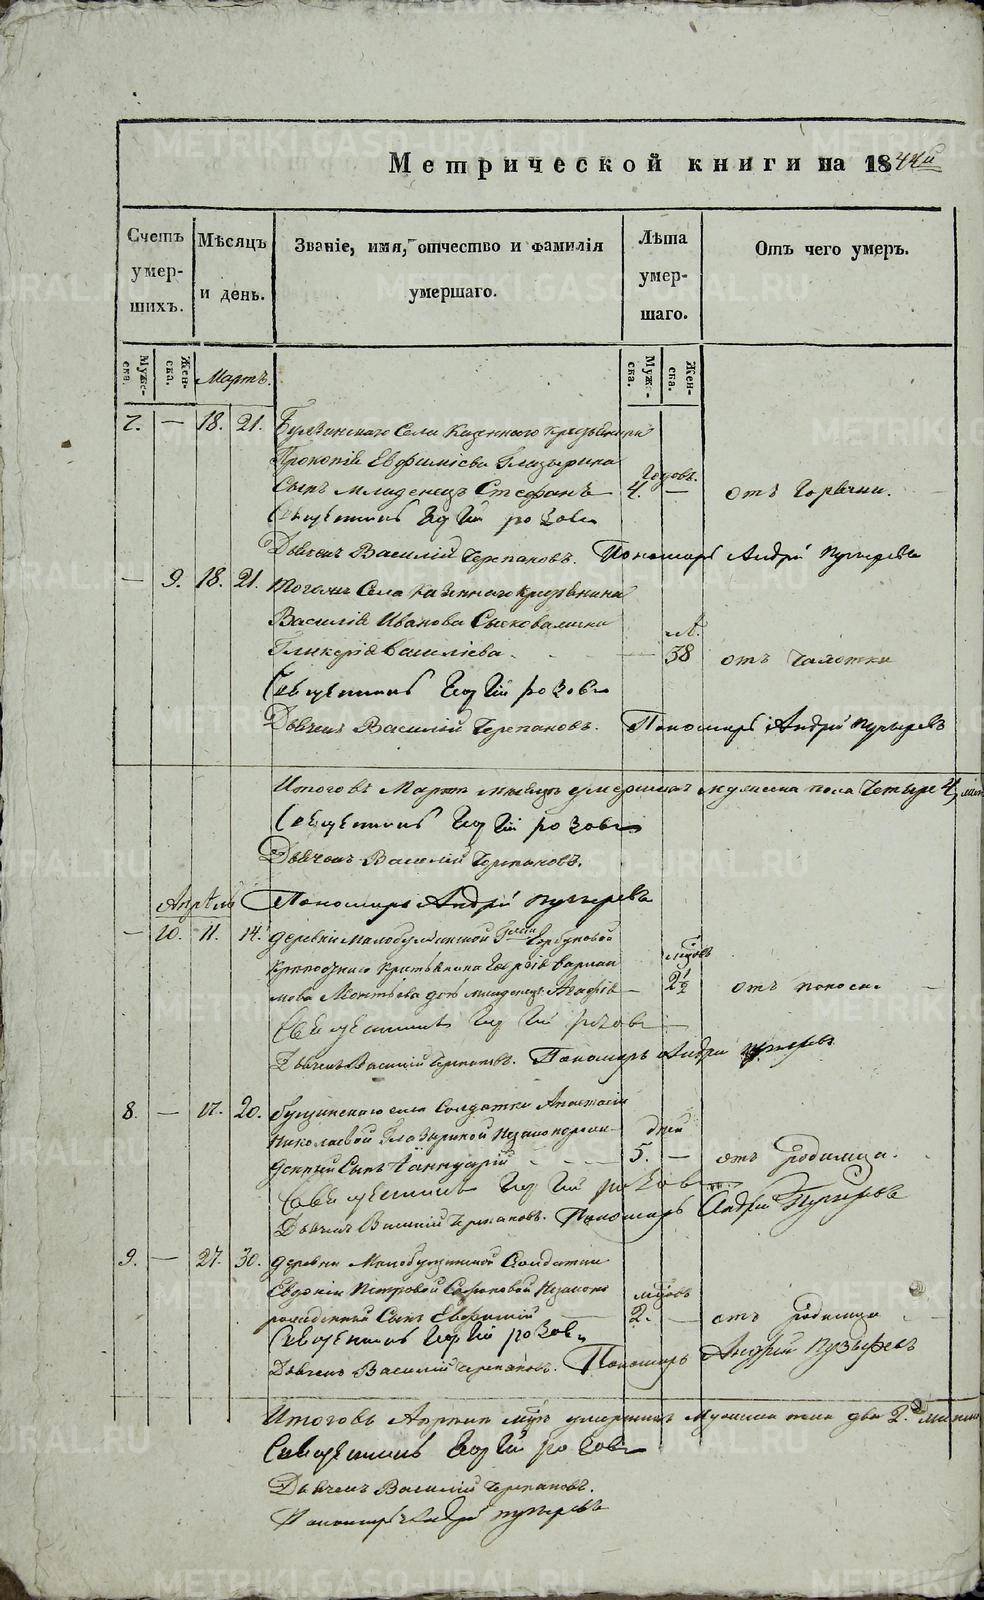 Метрической книги на 1844й
Счетъ умер- шихъ.
Мѣсяцъ и день.
Званіе, имя, отчество и фамилія умершаго.
Лѣта умер- шаго.
Отъ чего умеръ.
Муже- ска.
Жен- ска.
Мартъ.
Муже- ска.
Жен- ска.
7. — 18. 21. Села Казеннаго крестьянина
Прокопія Евфиміева Глазырина
Годовъ.
Сынъ младенецъ Стефанъ — 4. — отъ Горячки.
Священникъ Георгій розовъ
Дьячекъ Василій Черепановъ. Пономарь Андрей Пузыревъ
— 9. 18. 21. Тогожъ Села Казеннаго крестьянина
Василія Иванова
Л.
Гликерія Василіева. — 38 отъ чахотки
Священникъ Георгій розовъ
Дьячекъ Василій Черепановъ. Пономарь Андрей Пузыревъ
Итого въ Мартѣ мѣсяцѣ умершихъ мужеска пола Четыре 4,
Священникъ Георгій розовъ
Дьячекъ Василій Черепановъ.
Апрѣль Пономарь Андрей Пузыревъ
— 10. 11. 14. деревни Горбуновой
крестьянина Георгія
годовъ
младенецъ Агафія — 2½ отъ поноса —
Священникъ Георгій розовъ
Дьячекъ Василій Черепановъ. Пономарь Андрей Пузыревъ
8. — 17. 20. села Солдатки Анастасіи
Николаевой Глазыриной Незаконорож-
дней
денный Сынъ Іаннуарій 5. — отъ родимца.
Священникъ Георгій розовъ
Дьячекъ Василій Черепановъ. Пономарь Андрей Пузыревъ
9. — 27. 30. деревни Солдатки
Евдокіи Петровой Незаконо
годовъ
рожденный Сынъ Евфимій 2. — отъ родимца
Священникъ Георгій розовъ
Дьячекъ Василій Черепановъ. Пономарь Андрей Пузыревъ
Итого въ Апрѣлѣ умершихъ Мужеска пола два 2.
Священникъ Георгій розовъ
Дьячекъ Василій Черепановъ.
Пономарь Андрей Пузыревъ
METRIKI.GASO-URAL.RU